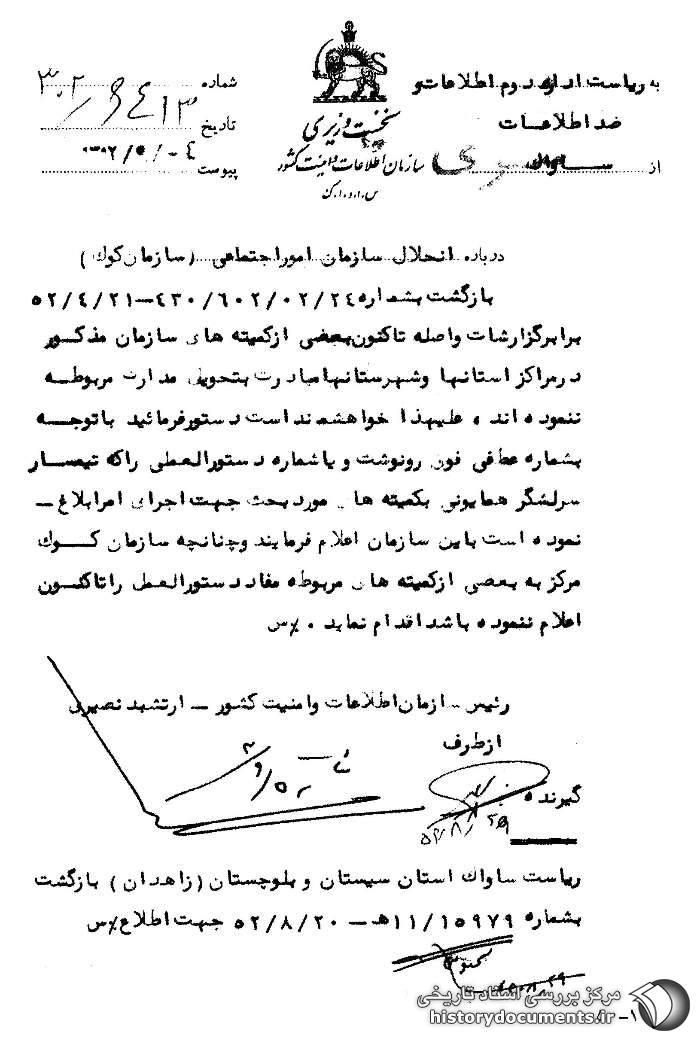 به ریاست اداره دوم اطلاعات و
ضد اطلاعات
از ساواک
نخست وزیری
سازمان اطلاعات و امنیت کشور
س.ا.و.ا.ک
شماره
تاریخ
پیوست
درباره انحلال سازمان امور اجتماعی (سازمان کوک)
بازگشت بشماره ۴۳۰/۶۰۲/۰۲/۲۴-۵۲/۴/۲۱
برابر گزارشات واصله تاکنون بعضی از کمیته های سازمان مذکور
در مراکز استانها و شهرستانها مبادرت بتحویل مدارک مربوطه
ننموده اند، علیهذا خواهشمند است دستور فرمائید با توجه
بشماره عطفی فوق رونوشت و یا شماره دستورالعملی را که تیمسار
سرلشگر همایونی بکمیته های مورد بحث جهت اجرای امر ابلاغ -
نموده است باین سازمان اعلام فرمایند و چنانچه سازمان کوک
مرکز به بعضی از کمیته های مربوطه مفاد دستورالعمل را تاکنون
اعلام ننموده باشد اقدام نماید . %س
رئیس سازمان اطلاعات و امنیت کشور - ارتشبد نصیری
از طرف
گیرنده
۵۲/۸/۲۹
ریاست ساواک استان سیستان و بلوچستان (زاهدان) بازگشت
بشماره ۱۱/۱۵۹۷۹ه - ۵۲/۸/۲۰ جهت اطلاع %س
مرکز بررسی اسناد تاریخی
historydocuments.ir